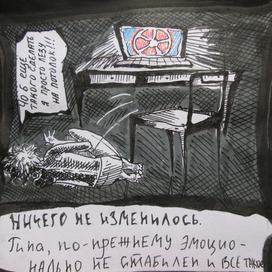 ЧО Б ЕЩЕ
ТАКОГО СДЕЛАТЬ
Я ПРОСТО ЛЕЗУ
НА ПОТОЛОК!!!
НИЧЕГО НЕ ИЗМЕНИЛОСЬ.
Типа, по-прежнему эмоцио-
нально не стабилен и все такое